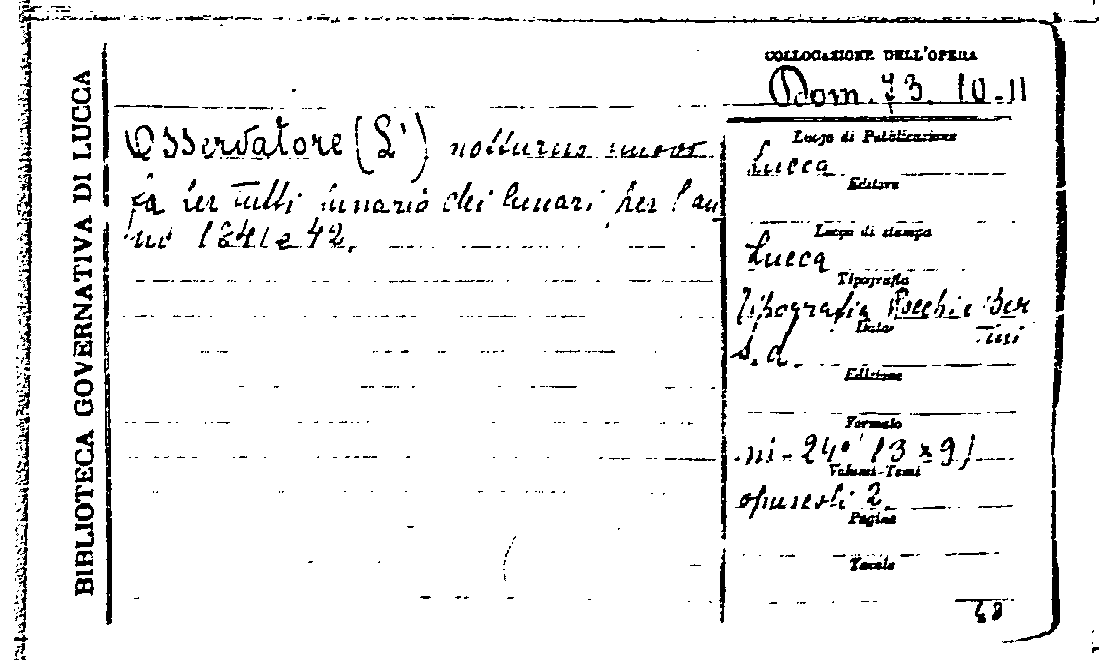 BIBLIOTECA GOVERNATIVA DI LUCCA
COLLOCAZIONE DELL'OPERA
Dom. 73. 10-11
Osservatore (L') notturno nuovo
fa per tutti lunario dei lunari per l'an
no 1841 e 42.
Luogo di Pubblicazione
Lucca
Editore
Luogo di stampa
Lucca
Tipografia
Tipografia Bertini
Data
s.d.
Edizione
Formato
in-24° 13 x 9
Volumi-Tomi
opuscoli 2
Pagine
Tavole